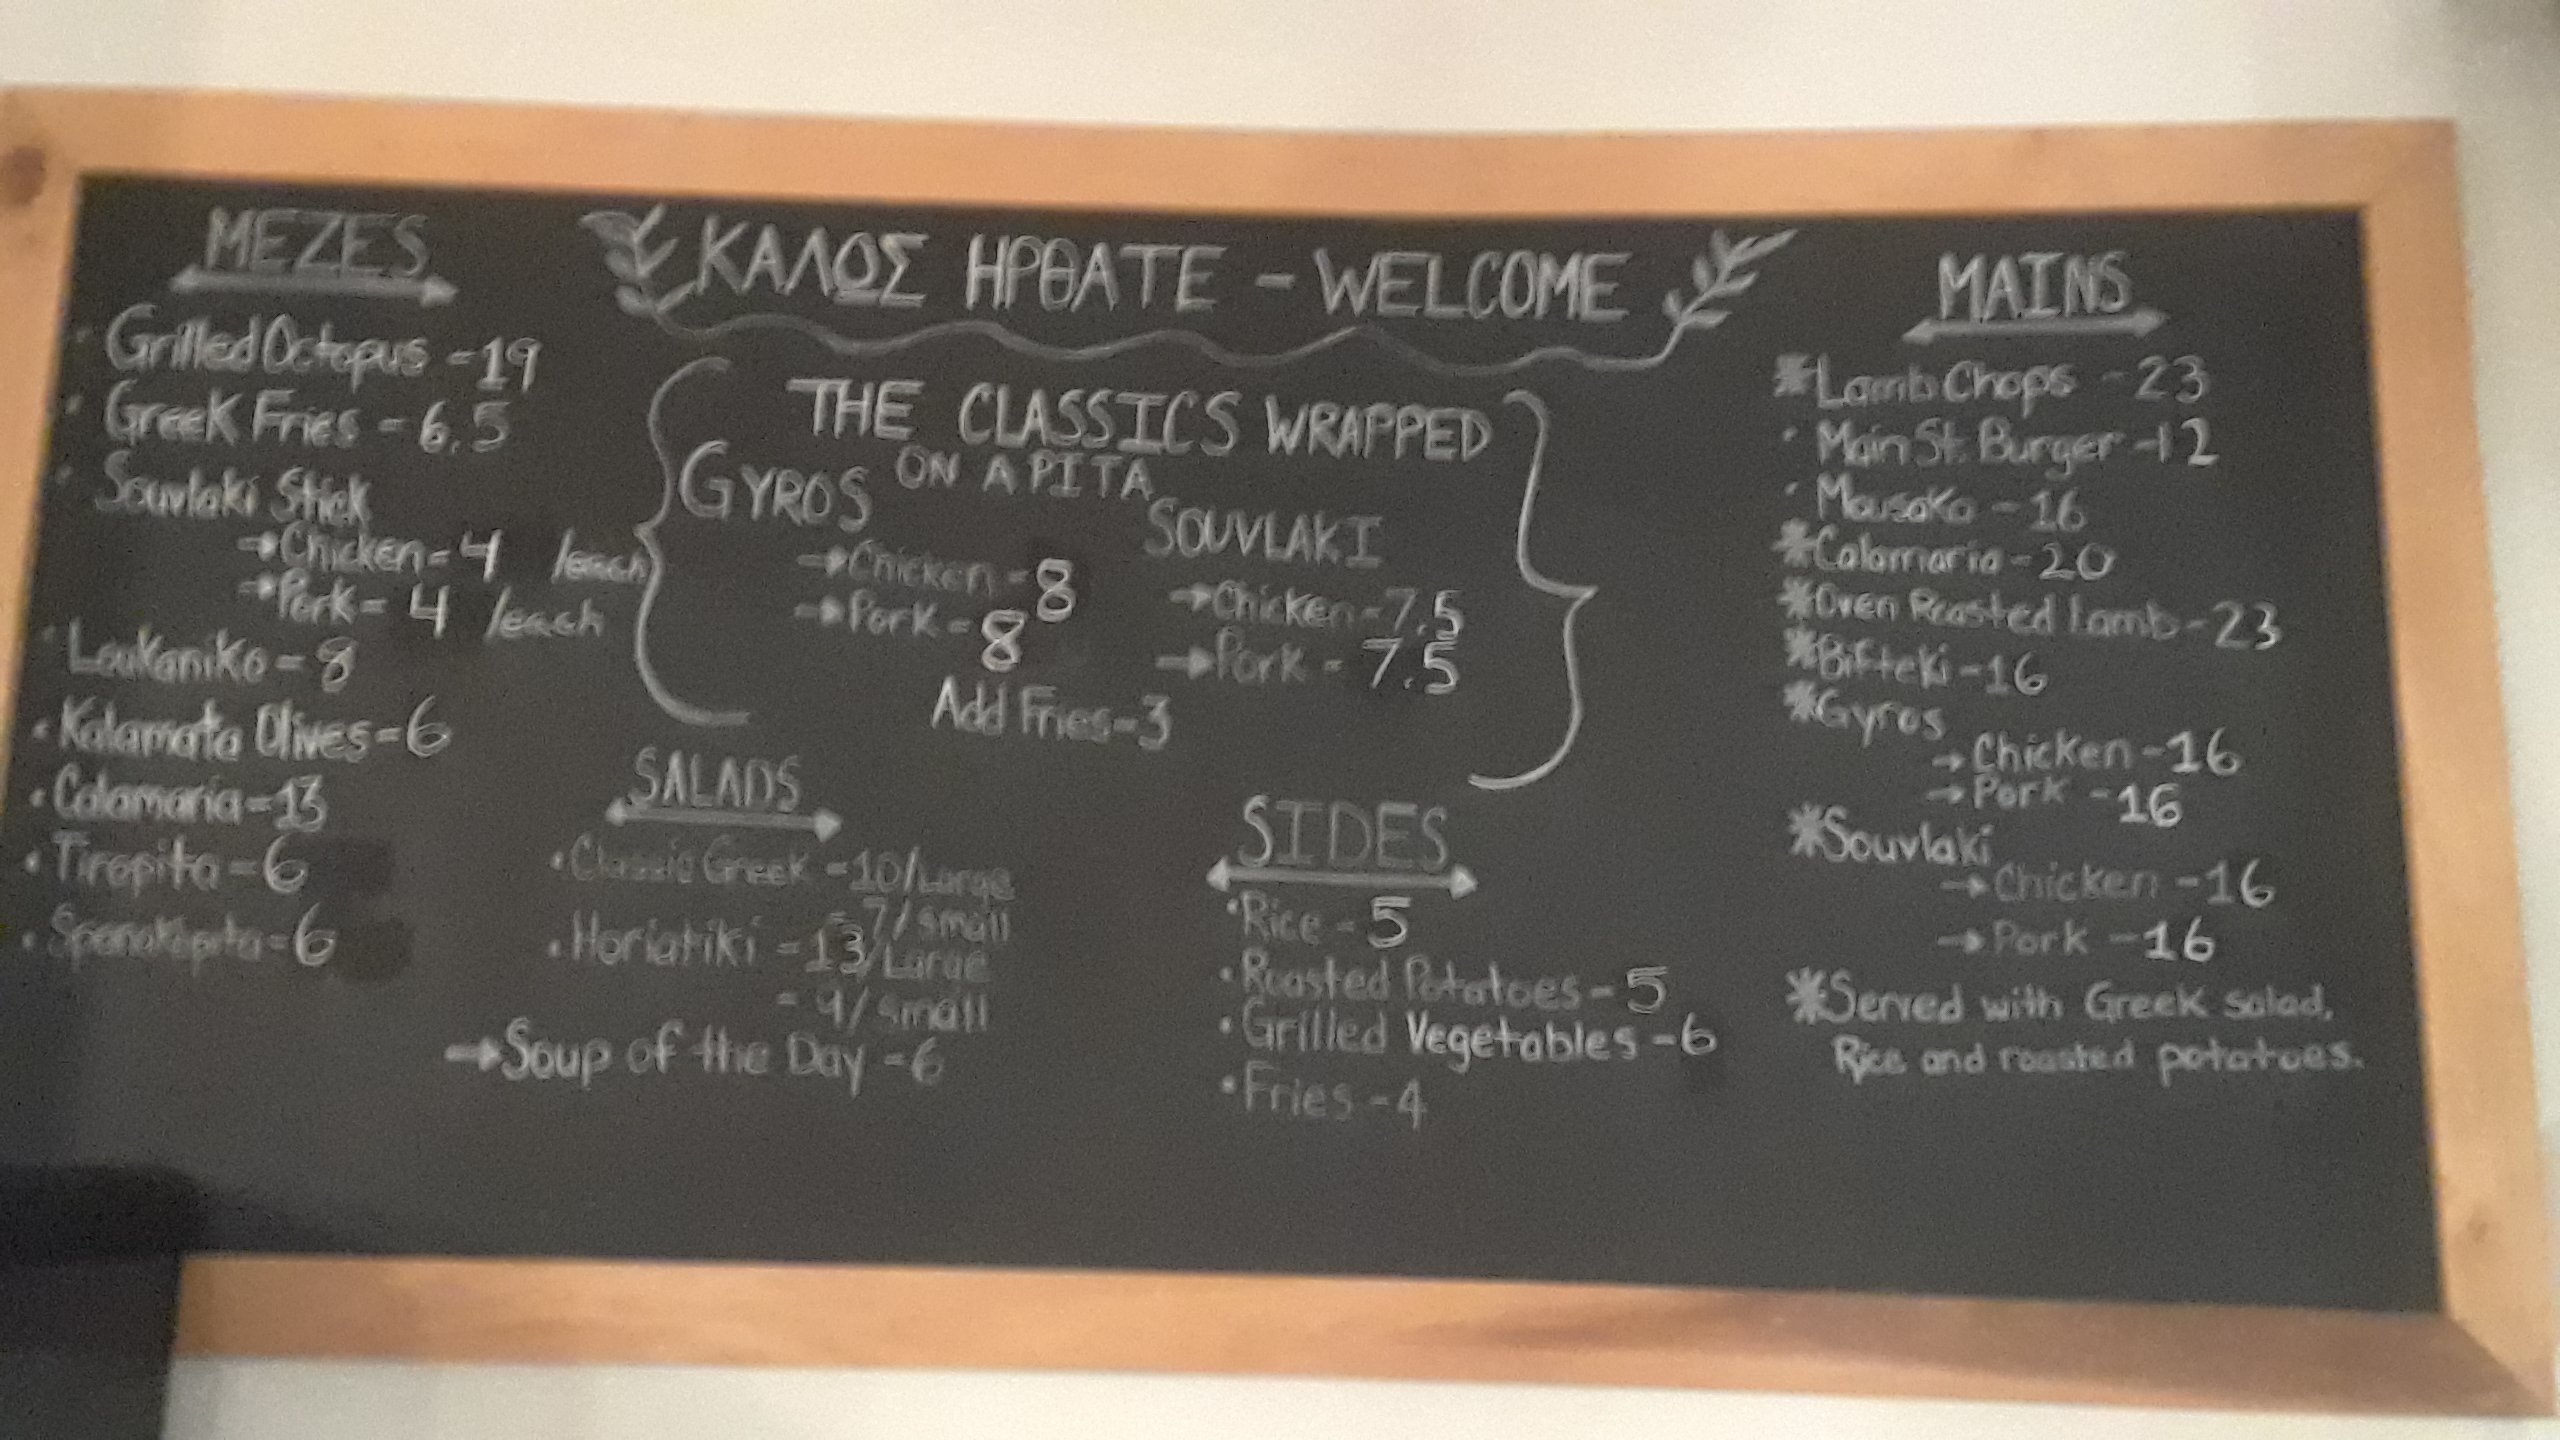 ΚΑΛΩΣ ΗΡΘΑΤΕ - WELCOME
MEZES
Grilled Octopus - 19
Greek Fries - 6.5
Souvlaki Stick
→Chicken - 4 /each
→Pork - 4 /each
Loukaniko - 8
Kalamata Olives - 6
Calamaria - 13
Tiropita - 6
Spanakopita - 6
THE CLASSICS WRAPPED
ON A PITA
GYROS
→Chicken - 8
→Pork - 8
SOUVLAKI
→Chicken - 7.5
→Pork - 7.5
Add Fries - 3
SALADS
Classic Greek - 10/Large
- 7/small
Horiatiki - 13/Large
- 9/small
→Soup of the Day - 6
SIDES
Rice - 5
Roasted Potatoes - 5
Grilled Vegetables - 6
Fries - 4
MAINS
*Lamb Chops - 23
Main St. Burger - 12
Mousaka - 16
*Calamaria - 20
*Oven Roasted Lamb - 23
*Bifteki - 16
*Gyros
→Chicken - 16
→Pork - 16
*Souvlaki
→Chicken - 16
→Pork - 16
*Served with Greek salad,
Rice and roasted potatoes.